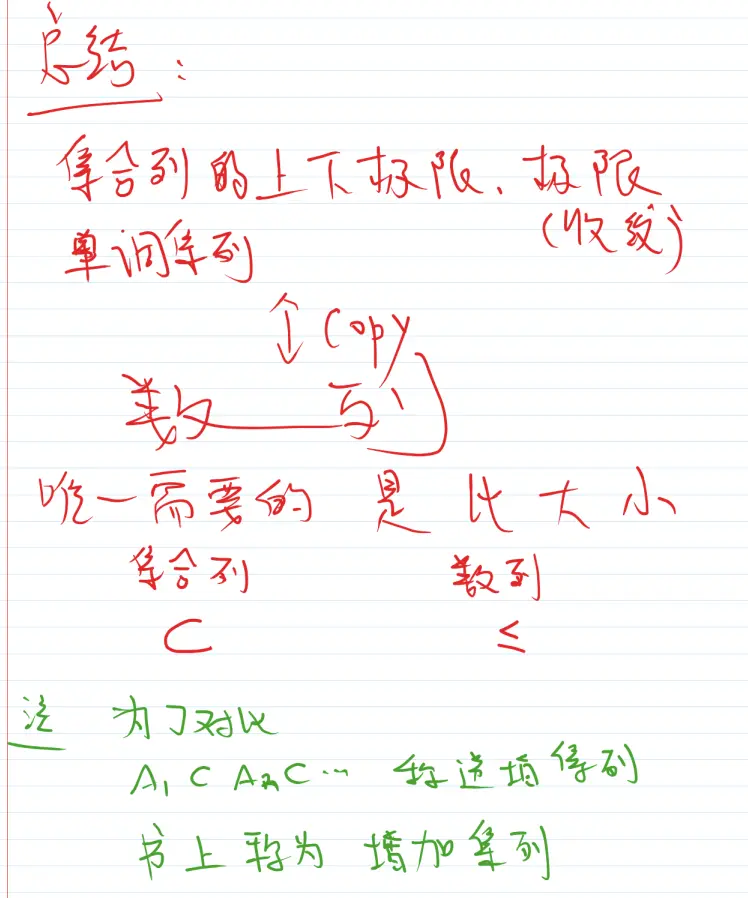 总结：
集合列的上下极限、极限
(收敛)
单调集列
↕ Copy
数列
唯一需要的 是 比大小
集合列 数列
⊂ ≤
注 为了对比
A₁ ⊂ A₂ ⊂ … 称递增集列
书上称为 增加集列